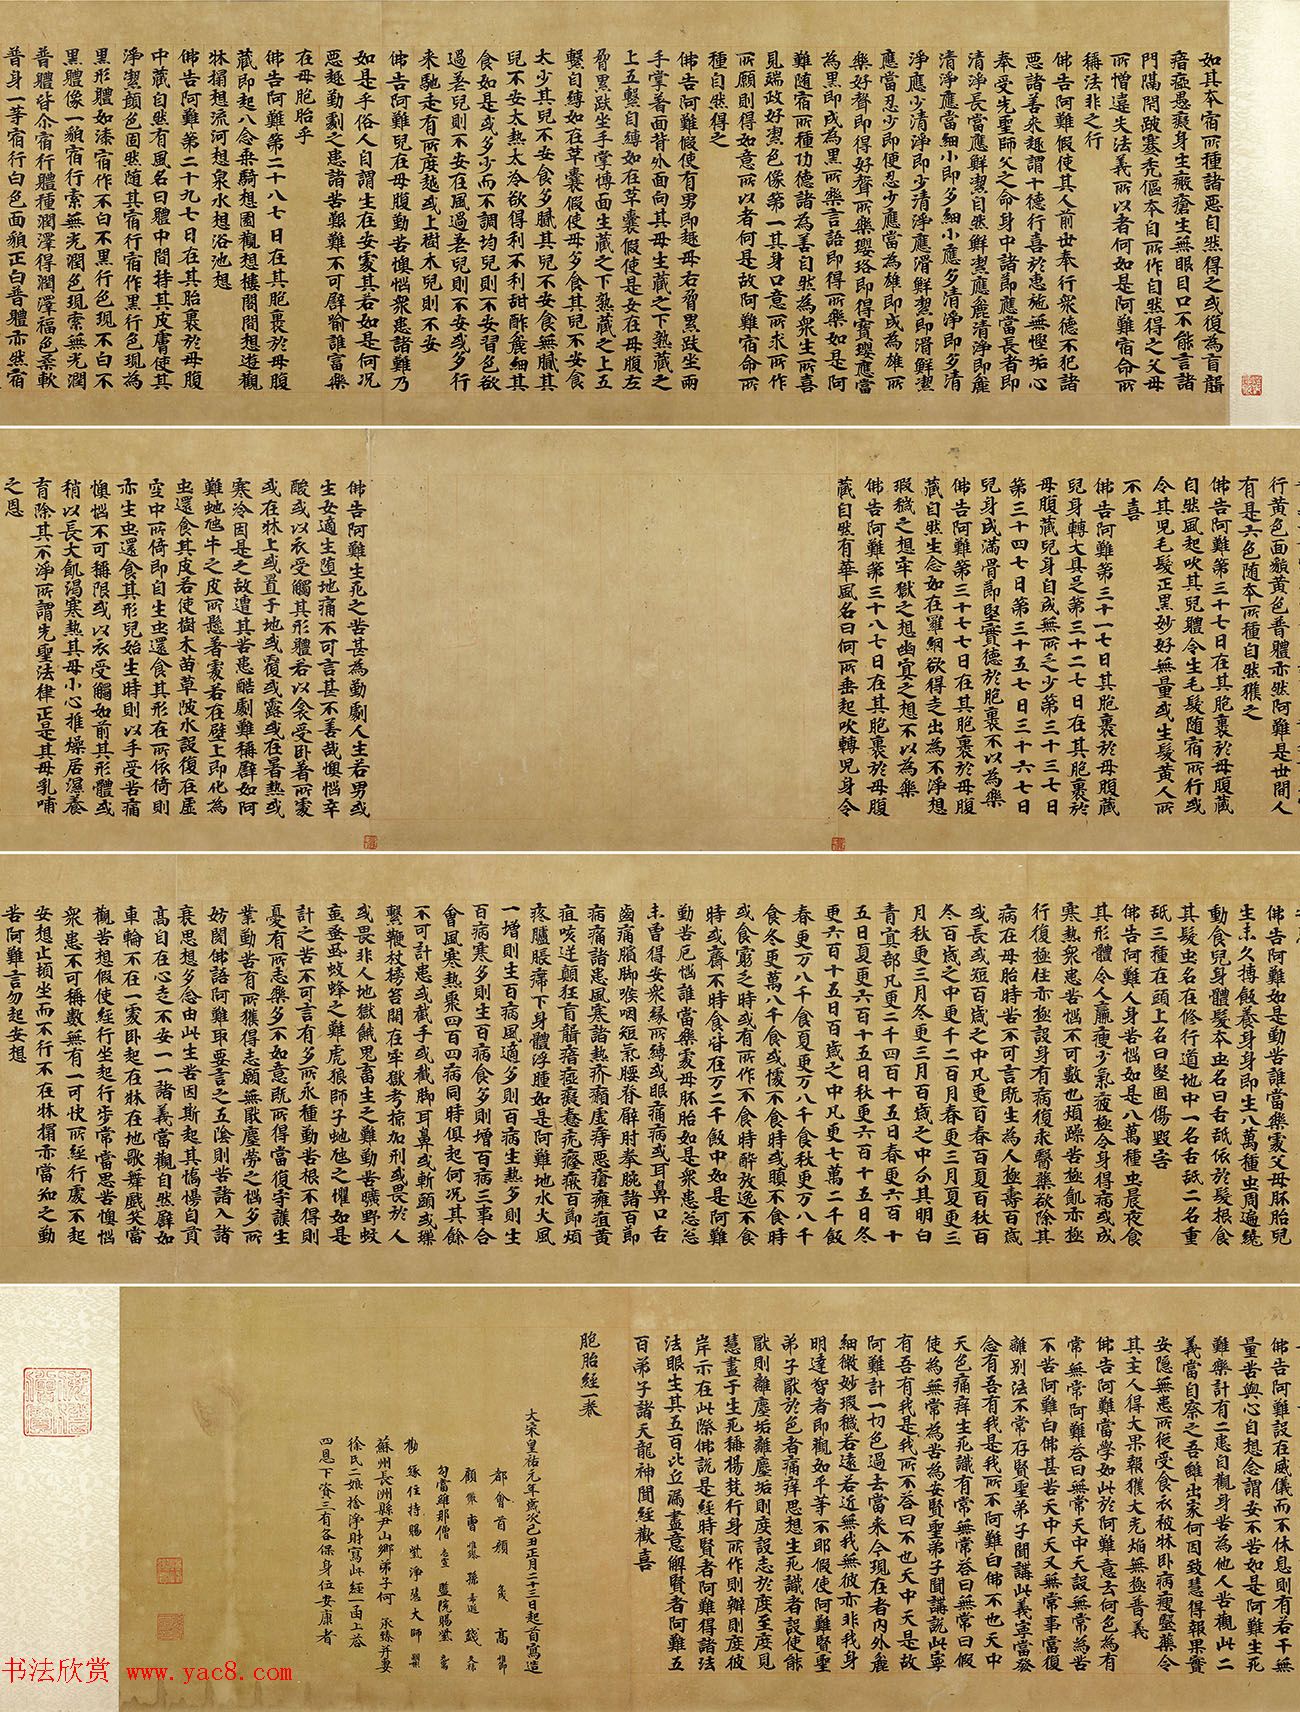 如其本宿所種諸惡自然得之或復為盲聾
瘖瘂愚癡身生瘢瘡生無眼目口不能言諸
門隔閉跛蹇禿傴本自所作自然得之父母
所憎違失法義所以者何如是阿難宿命所
稱法非之行
佛告阿難假使其人前世奉行眾德不犯諸
惡諸善來趣謂十德行喜於惠施無慳垢心
奉受先聖師父之命身中諸節應當長者即
清淨長當應鮮潔自然鮮潔應麁清淨即麁
清淨應當細小即多細小應多清淨即多清
淨應少清淨即少清淨應滑鮮潔即滑鮮潔
應當忍少即便忍少應當為雄即成為雄所
樂好聲即得好聲所樂瓔珞即得寶瓔應當
為黑即成為黑所樂言語即得所樂如是阿
難隨宿所種功德諸為善自然為眾生所喜
見端政好潔色像第一其身口意所求所作
所願則得如意所以者何是故阿難宿命所
種自然得之
佛告阿難假使有男即趣母右脅累趺坐兩
手掌著面背外面向其母生藏之下熟藏之
上五繫自縛如在革囊假使是女在母腹左
脅累趺坐手掌博面生藏之下熟藏之上五
繫自縛如在革囊假使母多食其兒不安食
太少其兒不安食多膩其兒不安食無膩其
兒不安太熱太冷欲得利不利甜酢麁細其
食如是或多少而不調均兒則不安習色欲
過差兒則不安在風過差兒則不安或多行
來馳走有所度越或上樹木兒則不安
佛告阿難兒在母腹勤苦懊惱眾患諸難乃
如是乎俗人自謂生在安處其若如是何況
惡趣勤劇之患諸苦艱難不可譬喻誰當樂
在母胞胎乎
佛告阿難第二十八七日在其胞裹於母腹
藏即起八念乘騎想園觀想樓閣想遊觀
牀榻想流河想泉水想浴池想
佛告阿難第二十九七日在其胎裹於母腹
中藏自然有風名曰體中間持其皮膚使其
淨潔顏色固然隨其宿行宿作黑行色現為
黑形體如漆宿作不白不黑行色現不白不
黑體像一貌宿行素無光潤色現素無光潤
普體皆爾宿行體種潤澤得潤澤福色柔軟
普身一等宿行白色面貌正白普體亦然宿
行黃色面貌黃色普體亦然阿難是世間人
有是六色隨本所種自然獲之
佛告阿難第三十七日在其胞裹於母腹藏
自然風起吹其兒體令生毛髮隨宿所行或
令其兒毛髮正黑妙好無量或生髮黃人所
不喜
佛告阿難第三十一七日其胞裹於母腹藏
兒身轉大具足第三十二七日在其胞裹於
母腹藏兒身自成無所乏少第三十三七日
第三十四七日第三十五七日三十六七日
兒身成滿骨節堅實德於胞裹不以為樂
佛告阿難第三十七七日在其胞裹於母腹
藏自然生念如在羅網欲得走出為不淨想
瑕穢之想牢獄之想幽冥之想不以為樂
佛告阿難第三十八七日在其胞裹於母腹
藏自然有華風名曰何所垂起吹轉兒身令
佛告阿難生死之苦甚為勤劇人生若男或
生女適生墮地痛不可言甚不善哉懊惱辛
酸或以衣受觸其形體若以衾受卧著所處
或在牀上或置于地或覆或露或在暑熱或
寒冷因是之故遭其苦患酷劇難稱譬如阿
難虵虺牛之皮所懸著處若在壁上即化為
虫還食其皮若使樹木苗草陂水設復在虛
空中所倚即自生虫還食其形在所依倚則
亦生虫還食其形兒始生時則以手受苦痛
懊惱不可稱限或以衣受觸如前其形體或
稍以長大飢渴寒熱其母小心推燥居濕養
育除其不淨所謂先聖法律正是其母乳哺
之恩
佛告阿難如是勤苦誰當樂處父母胚胎兒
生未久搏飯養身身即生八萬種虫周遍繞
動食兒身體髮本虫名曰舌舐依於髮根食
其髮虫名在修行道地中一名舌舐二名重
舐三種在頭上名曰堅固傷毀害
佛告阿難人身苦惱如是八萬種虫晨夜食
其形體令人羸瘦少氣疲極令身得病或成
寒熱眾患苦惱不可數也煩躁苦極飢亦極
行復極住亦極設身有病復求醫藥欲除其
病在母胎時苦不可言既生為人極壽百歲
或長或短百歲之中凡更百春百夏百秋百
冬百歲之中更千二百月春更三月夏更三
月秋更三月冬更三月百歲之中分其明白
青冥部凡更二千四百十五日春更六百十
五日夏更六百十五日秋更六百十五日冬
更六百十五日百歲之中凡更七萬二千飯
春更万八千食夏更万八千食秋更万八千
食冬更萬八千食或懅不食時或瞋不食時
或食窮乏時或有所作不食時醉放逸不食
時或齋不時食皆在万二千飯中如是阿難
勤苦厄惱誰當樂處母胚胎如是眾患怱怱
未曾得安眾緣所縛或眼痛病或耳鼻口舌
齒痛臏腳喉咽短氣腰脊臂肘拳腕諸百節
病痛諸患風寒諸熱疥癩虛痔惡瘡癰疽黃
疸咳逆顛狂盲聾瘖瘂癡惷疣瘞瘶百節煩
疼臚脹滯下身體浮腫如是阿難地水火風
一增則生百病風適多則百病生熱多則生
百病寒多則生百病食多則增百病三事合
會風寒熱聚四百四病同時俱起何況其餘
不可計患或截手或截腳耳鼻或斬頭或瑮
繫鞭杖榜笞閉在牢獄考掠加刑或畏於人
或畏非人地獄餓鬼畜生之難勤苦曠野蚊
虻蚤虱蚊蜂之難虎狼師子虵虺之懼如是
計之苦不可言有多所求種勤苦根不得則
憂有所志樂多不如意既所得當復守護生
業勤苦有所獲得志願無厭塵勞之惱多所
妨閡佛語阿難取要言之五陰則苦諸入諸
衰思想多念由此生苦因斯起其憍慢自貢
高自在心走不安一一諸義當觀自然譬如
車輪不在一處卧起在牀在地歌舞戲笑當
觀苦想假使經行坐起行步常當思苦懊惱
眾患不可稱數無有一可快所經行處不起
安想止頓坐而不行不在牀榻亦當知之勤
苦阿難言勿起安想
佛告阿難設在威儀而不休息則有若干無
量苦與心自想念謂安不苦如是阿難生死
難樂計有二患自觀身苦為他人苦觀此二
義當自察之吾雖出家何因致慧得報果實
安隱無患所從受食衣被牀卧病瘦醫藥令
其主人得大果報獲大光焰無極普義
佛告阿難當學如此於阿難意去何色為有
常無常阿難答曰無常天中天設無常為苦
不苦阿難白佛甚苦天中天又無常事當復
離別法不常存賢聖弟子聞講此義寧當發
念有吾有我是我所不阿難白佛不也天中
天色痛痒生死識有常無常答曰無常曰假
使為無常為苦為安賢聖弟子聞講說此寧
有吾有我是我所不答曰不也天中天是故
阿難計一切色過去當來今現在者內外麁
細微妙瑕穢若遠若近無我無彼亦非我身
明達智者即觀如平等不耶假使阿難賢聖
弟子厭於色者痛痒思想生死識者設使能
厭則離塵垢離塵垢則度設志於度至度見
慧盡于生死稱楊梵行身所作則辦則度彼
岸示在此際佛說是經時賢者阿難得諸法
法眼生其五百比丘漏盡意解賢者阿難五
百弟子諸天龍神聞經歡喜
胞胎經一卷
大宋皇祐元年歲次己丑正月二十三日起首寫造
都會首顏
勾當雖那僧 監院賜紫
勸緣住持賜紫淨慧大師
蘇州長洲縣尹山鄉弟子何 承臻并妻
徐氏二娘捨淨財寫此經一函上荅
四恩下資三有各保身位安康者
书法欣赏 www.yac8.com